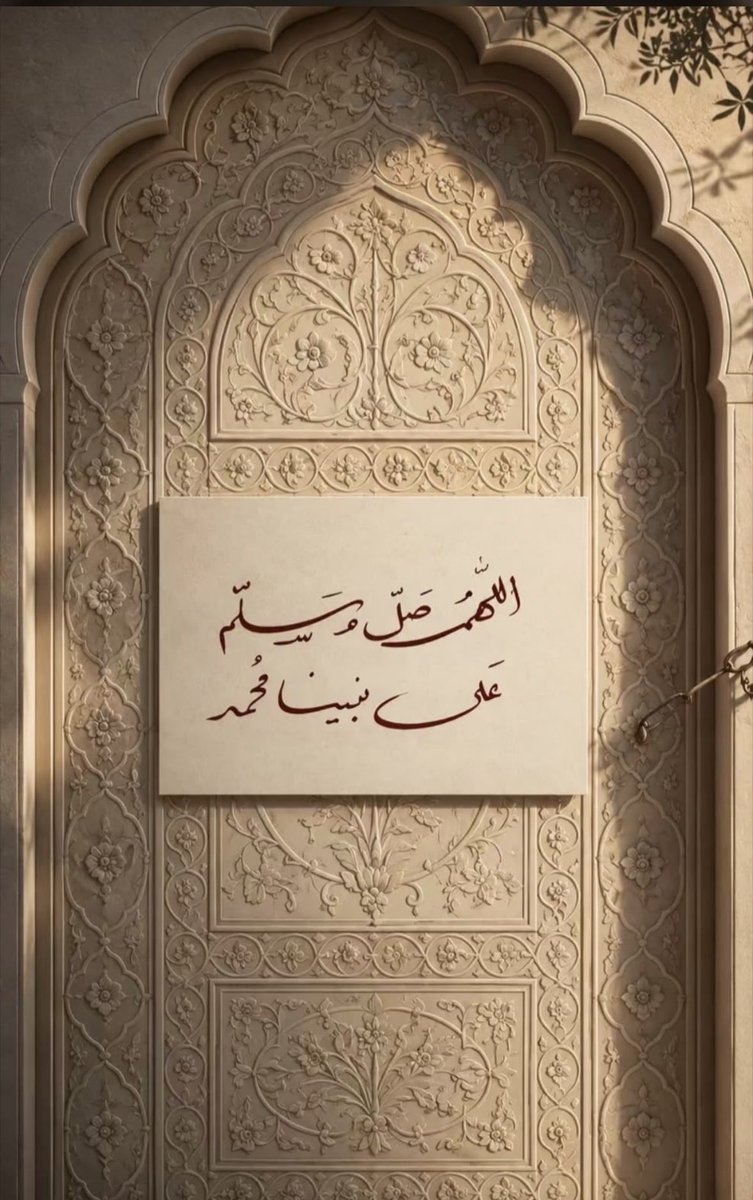 اللَّهُمَّ صَلِّ وَسَلِّم
عَلى نبينا مُحمد